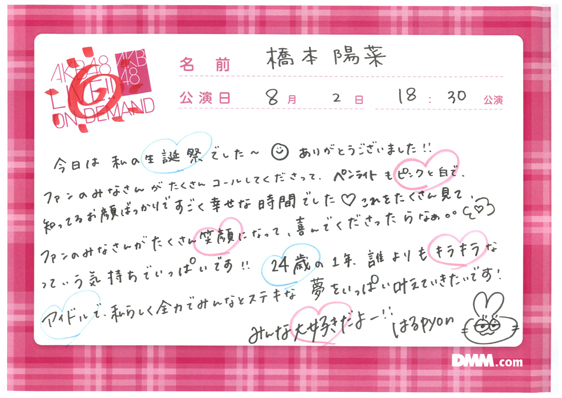 AKB48
LIVE!!
ON DEMAND
AKB
48
名前 橋本陽菜
公演日 8月 2日 18:30 公演
今日は私の生誕祭でした〜 ありがとうございました!!
ファンのみなさんがたくさんコールしてくださって、ペンライトもピンクと白で、
知ってるお顔ばっかりですごく幸せな時間でした♡ これをたくさん見て、
ファンのみなさんがたくさん笑顔になって、喜んでくださったらなぁ。。
っていう気持ちでいっぱいです!! 24歳の1年、誰よりもキラキラな
アイドルで、私らしく全力でみんなとステキな夢をいっぱい叶えていきたいです!
みんな大好きだよー!! はるpyon
DMM.com